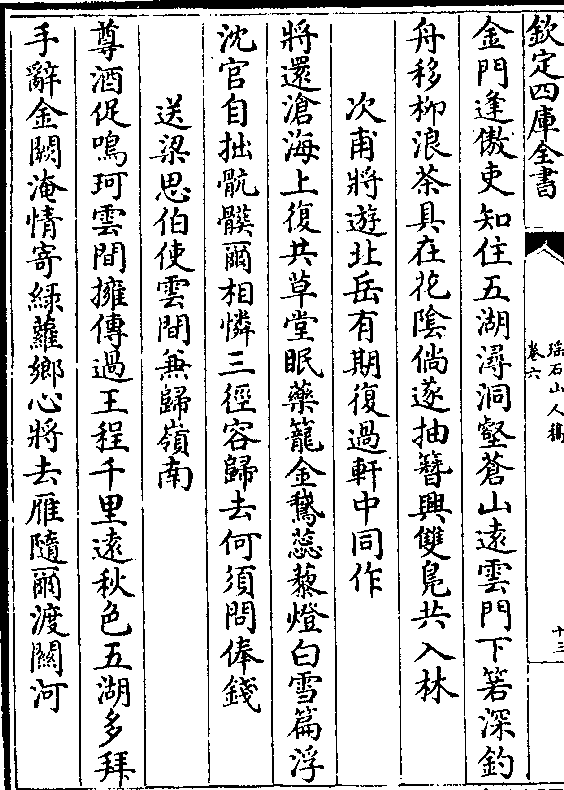 欽定四庫全書
瑶石山人稿
卷六
十三
金門逢傲吏知住五湖潯洞壑蒼山遠雲門下箬深釣
舟移柳浪茶具在花陰倘遂抽簪興雙鳬共入林
次甫將遊北岳有期復過軒中同作
將還滄海上復共草堂眠藥籠金鵞蕊藜燈白雪篇浮
沈官自拙骯髒爾相憐三徑容歸去何須問俸錢
送梁思伯使雲間兼歸嶺南
尊酒促鳴珂雲間擁傳過王程千里遠秋色五湖多拜
手辭金闕淹情寄緑蘿鄉心將去雁隨爾渡關河